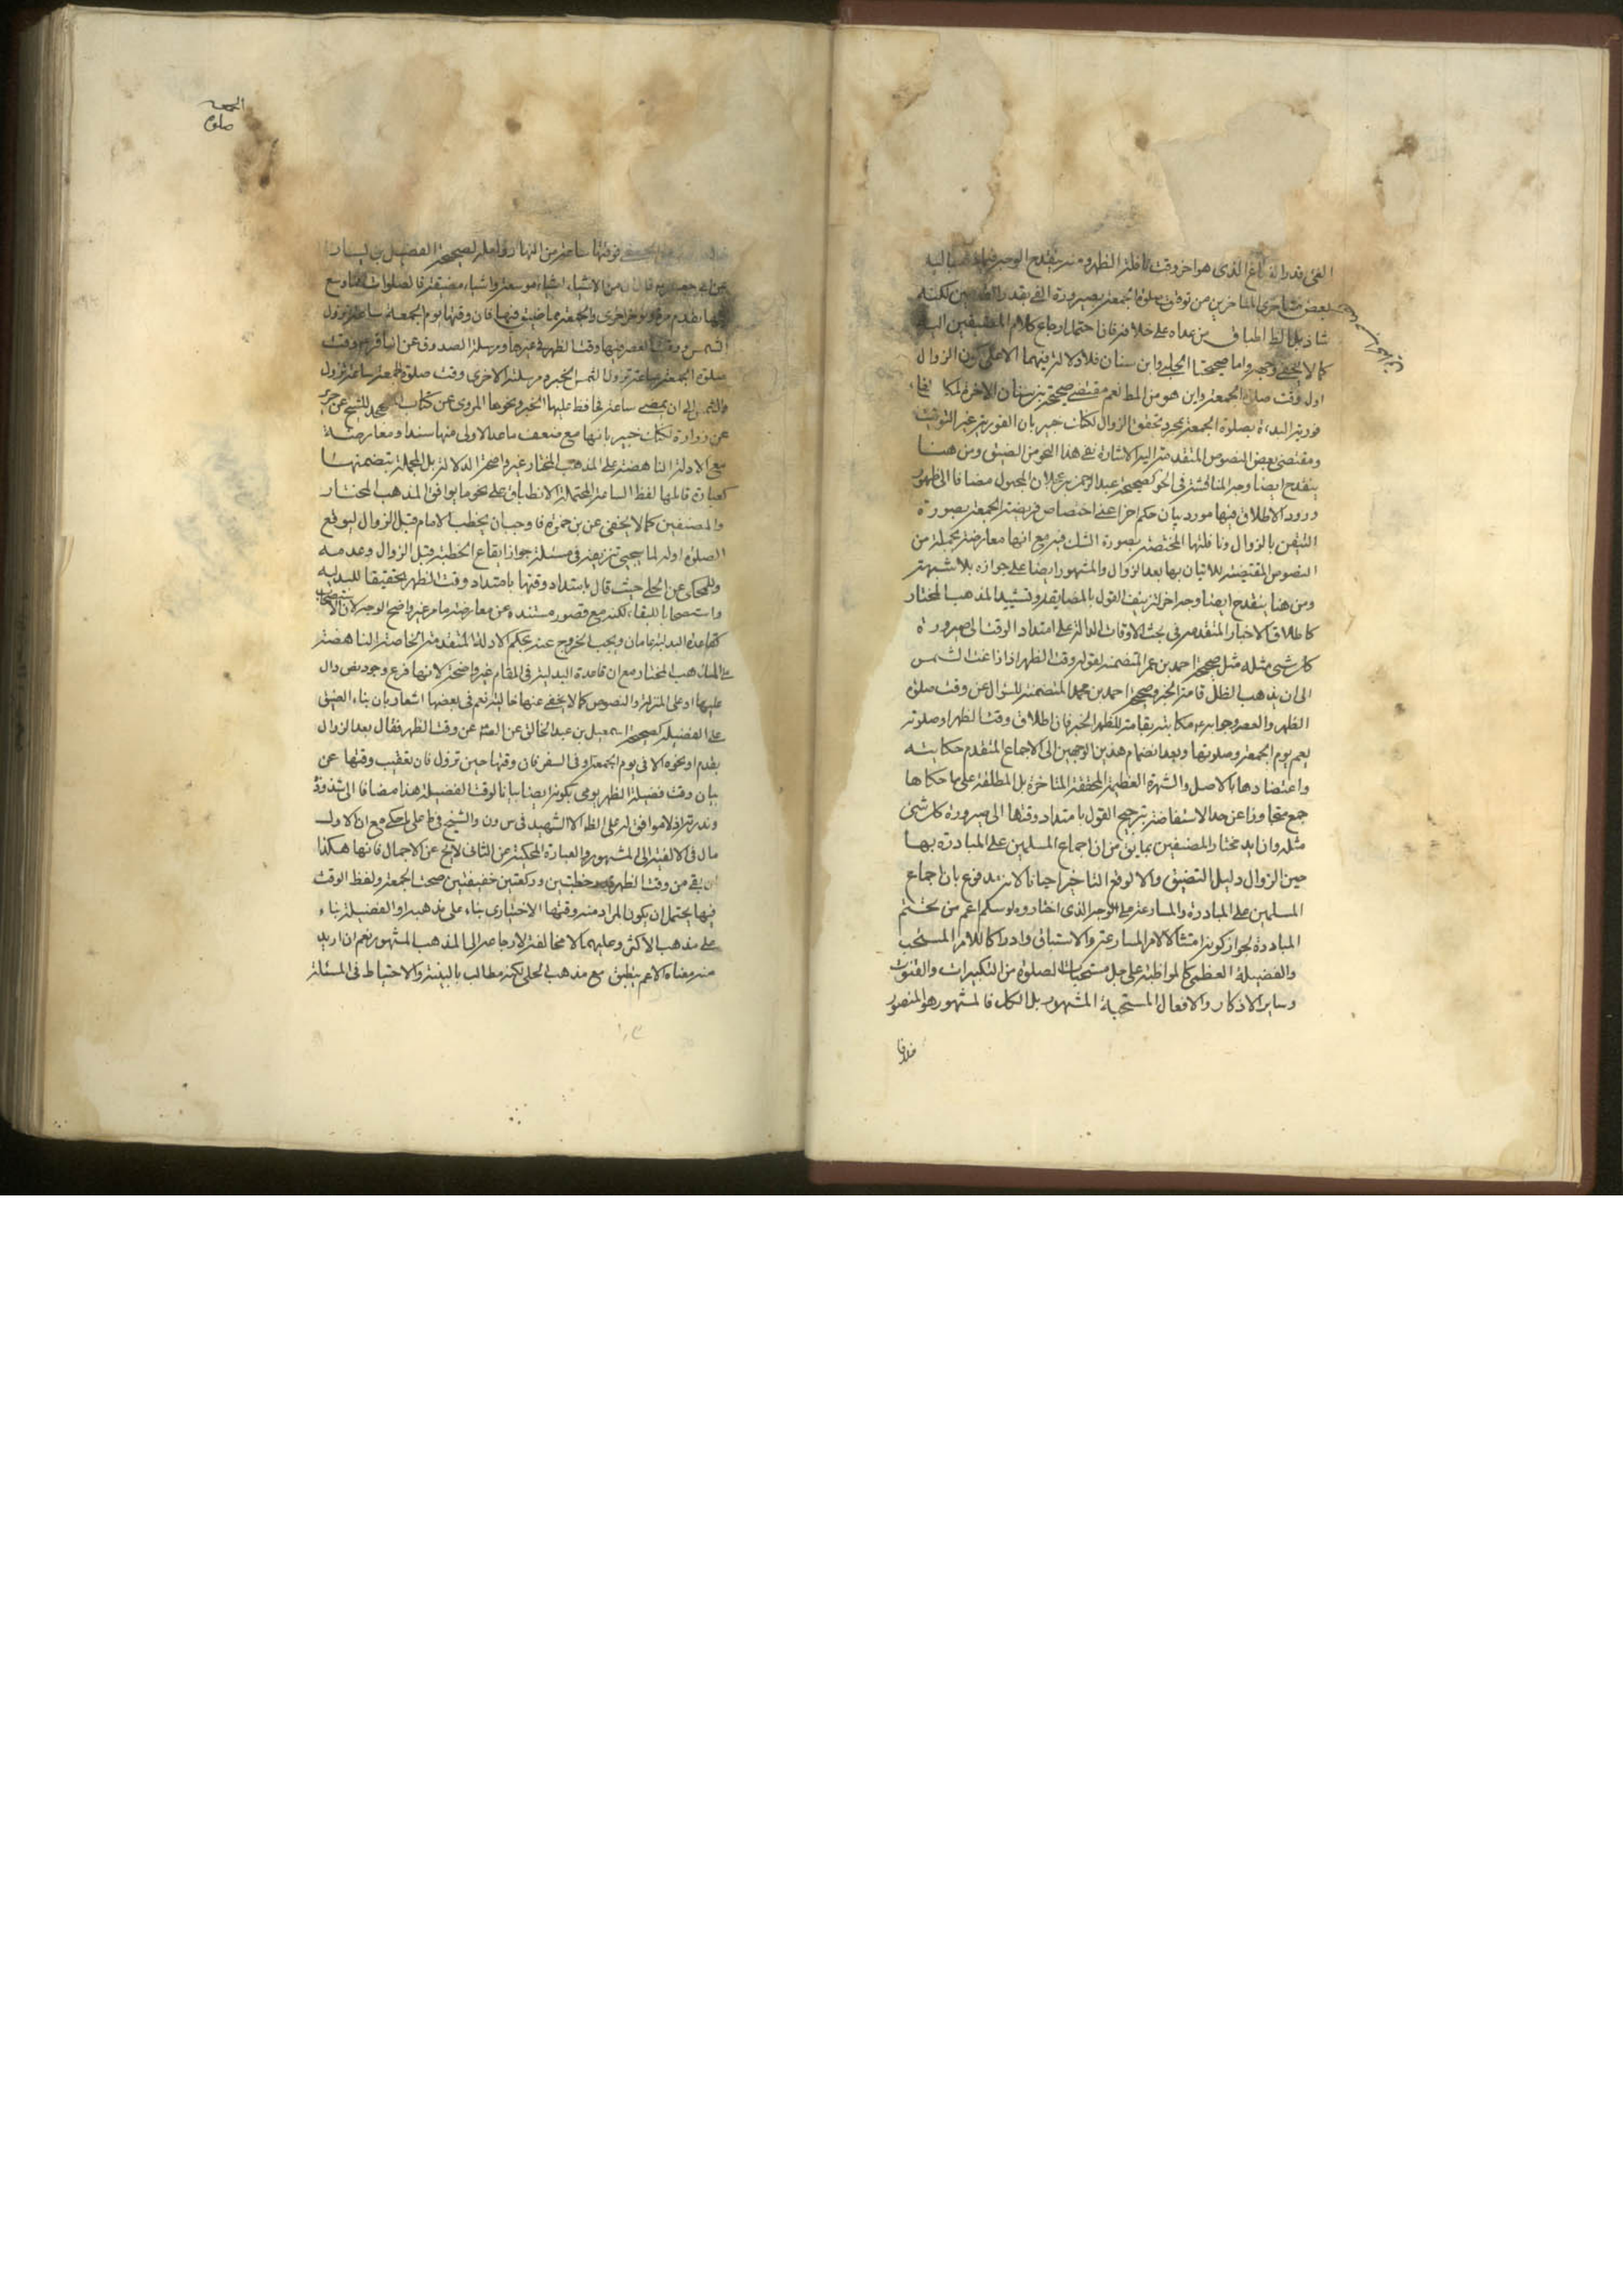 الفئ قدر الذراع الذى هو اخر وقت نافلة الظهر ومنه ينقدح الوجه فيما ذهب اليه
بعض متاخرى المتاخرين من توقيت صلوة الجمعة بصيرورة الفئ بقدر القدمين لكنه
شاذ بل الظ اطباق من عداه على خلافه فان احتمل ارجاع كلام المضيقين اليه
كما لا يخفى وجهه واما صحيحتا الحلبي وابن سنان فلا دلالة فيهما الا على كون الزوال
اول وقت صلوة الجمعة واين هو من المط نعم مقتضى صحيحة بن سنان الاخرة
فورية البدءة بصلوة الجمعة بمجرد تحقق الزوال لكنك خبير بان الفورية غير التوقيت
ومقتضى بعض النصوص المتقدمة اليه الاشارة نفى هذا النحو من الضيق ومن هنا
ينقدح ايضا وجه المناقشة فى صحيحة عبد الرحمن بن عجلان المجهول مضافا الى ظهور
ورود الاطلاق فيها مورد بيان حكم اخر اعنى اختصاص فريضة الجمعة بصورة
التيقن بالزوال ونافلتها المختصة بصورة الشك فيه مع انها معارضة بجملة من
النصوص المقتضية للاتيان بها بعد الزوال والمشهور ايضا على جوازه بلا شبهة
ومن هنا ينقدح ايضا وجه اخر لتزييف القول بالمضايقة وتشييد المذهب المختار
كاطلاق الاخبار المتقدمة فى بحث الاوقات الدالة على امتداد الوقت الى صيرورة
كل شئ مثله مثل صحيحة احمد بن عمر المتضمنة لقوله وقت الظهر اذا زاغت الشمس
الى ان يذهب الظل قامة الخبر وصحيحة احمد بن محمد المتضمنة للسؤال عن وقت صلوة
الظهر والعصر وجوابه ع مكاتبة بقامة للظهر الخبر فان اطلاق وقت الظهر او صلوته
يعم يوم الجمعة وصلوتها وبعد انضمام هذين الوجهين الى الاجماع المتقدم حكايته
واعتضادها بالاصل والشهرة العظيمة المحققة المتاخرة بل المطلقة على ما حكاها
جمع متجاوزا عن حد الاستفاضة يترجح القول بامتداد وقتها الى صيرورة كل شئ
مثله وان ايد مختار المضيقين بما يق من ان اجماع المسلمين على المبادرة بها
حين الزوال دليل التضيق والا لوقع التاخير احيانا الا انه مدفوع بان اجماع
المسلمين على المبادرة والمسارعة على الوجه الذى اختاروه لو سلم اعم من تحتم
المبادرة لجواز كونه امتثالا لامر المسارعة والاستباق وادراكا للامر المستحب
والفضيلة العظمى كالمواظبة على جل مستحبات الصلوة من التكبيرات والقنوت
وساير الاذكار والافعال المستحبة المشهور بل الكل فالمشهور هو المنصور
خلافا
الجمعه
صلوة
فوقتها ساعة من النهار لصحيحة الفضيل بن يسار
عن ابى جعفر ع قال ان من الاشياء اشياء موسعة واشياء مضيقة فالصلوات مما وسع
فيها تقدم مرة وتؤخر اخرى والجمعة مما ضيق فيها فان وقتها يوم الجمعة ساعة تزول
الشمس ووقت العصر فيها وقت الظهر فى غيرها ومرسلة الصدوق عن الباقر ع وقت
صلوة الجمعة ساعة تزول الشمس الخبر ومرسلته الاخرى وقت صلوة الجمعة ساعة تزول
الشمس الى ان يمضى ساعة يحافظ عليها الخبر ونحوها المروى عن كتاب للشيخ عن حريز
عن زرارة لكنك خبير بانها مع ضعف ما عدا الاولى منها سندا ومعارضة
مع الادلة الناهضة على المذهب المختار غير واضحة الدلالة بل المجملة بتضمنها
كعبارة قائلها لفظ الساعة المحتملة الانطباق على نحو ما يوافق المذهب المختار
والمضيقين كما لا يخفى عن بن حمزة فاوجب ان يخطب الامام قبل الزوال ليوقع
الصلوة اوله لما يجيئ تزييفه فى مسئلة جواز ايقاع الخطبة قبل الزوال وعدمه
وللمحكى عن الحلى حيث قال بامتداد وقتها بامتداد وقت الظهر تحقيقا للبدلية
واستصحابا للبقاء لكنه مع قصور مستنده عن معارضة ما مر غير واضح الوجه لان الاستصحاب
كقاعدة البدلية عامان ويجب الخروج عنه بحكم الادلة المتقدمة الخاصة الناهضة
على المذهب المختار مع ان قاعدة البدلية فى المقام غير واضحة لانها فرع وجود نص دال
عليها او على المنزلة والنصوص كما لا يخفى عنها خالية نعم فى بعضها اشعار بان بناء الضيق
على الفضيلة كصحيحة اسمعيل بن عبد الخالق عن الصم عن وقت الظهر فقال بعد الزوال
بقدم او نحوه الا فى يوم الجمعة وفى السفر فان وقتها حين تزول فان تعقيب وقتها عن
بيان وقت فضيلة الظهر يومى بكونه ايضا بيانا لوقت الفضيلة هذا مضافا الى شذوذه
وندرته اذ لا موافق له على الظ الا الشهيد فى س ون والشيخ فى ط على ما حكى مع ان الاول
مال فى الالفية الى المشهور والعبارة المحكية عن الثانى لا يخ عن الاجمال فانها هكذا
ان بقى من وقت الظهر قدر خطبتين وركعتين خفيفتين صحت الجمعة ولفظ الوقت
فيها يحتمل ان يكون المراد منه وقتها الاختيارى بناء على مذهبه او الفضيلة بناء
على مذهب الاكثر وعليهما لا مخالفة لارجاعه الى المذهب المشهور نعم ان اريد
منه معناه الاعم ينطبق مع مذهب الحلى لكنه مطالب بالبينة والاحتياط فى المسئلة